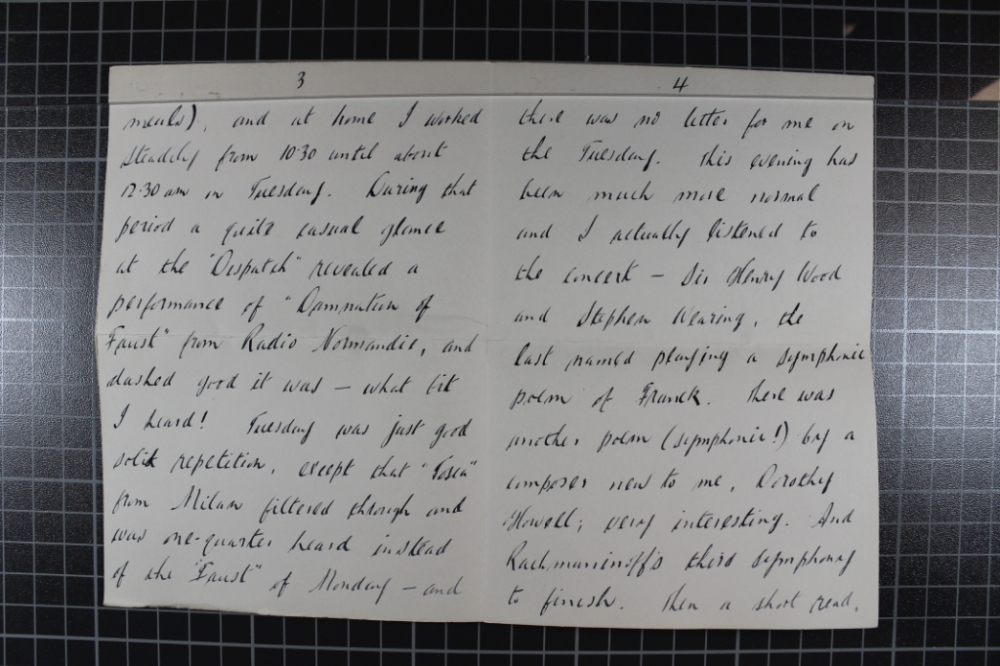 3
meals), and at home I worked
steadily from 10.30 until about
12.30 am on Tuesday. During that
period a quite casual glance
at the "Despatch" revealed a
performance of "Damnation of
Faust" from Radio Normandie, and
dashed good it was – what bit
I heard! Tuesday was just good
solid repetition, except that "Tosca"
from Milan filtered through and
was one-quarter heard instead
of the "Faust" of Monday – and
4
there was no letter for me on
the Tuesday. This evening has
been much more normal
and I actually listened to
the concert – Sir Henry Wood
and Stephen Wearing, the
last named playing a symphonic
poem of Franck. There was
another poem (symphonic!) by a
composer new to me, Dorothy
Howell; very interesting. And
Rachmaninoff's third symphony
to finish. Then a short read,